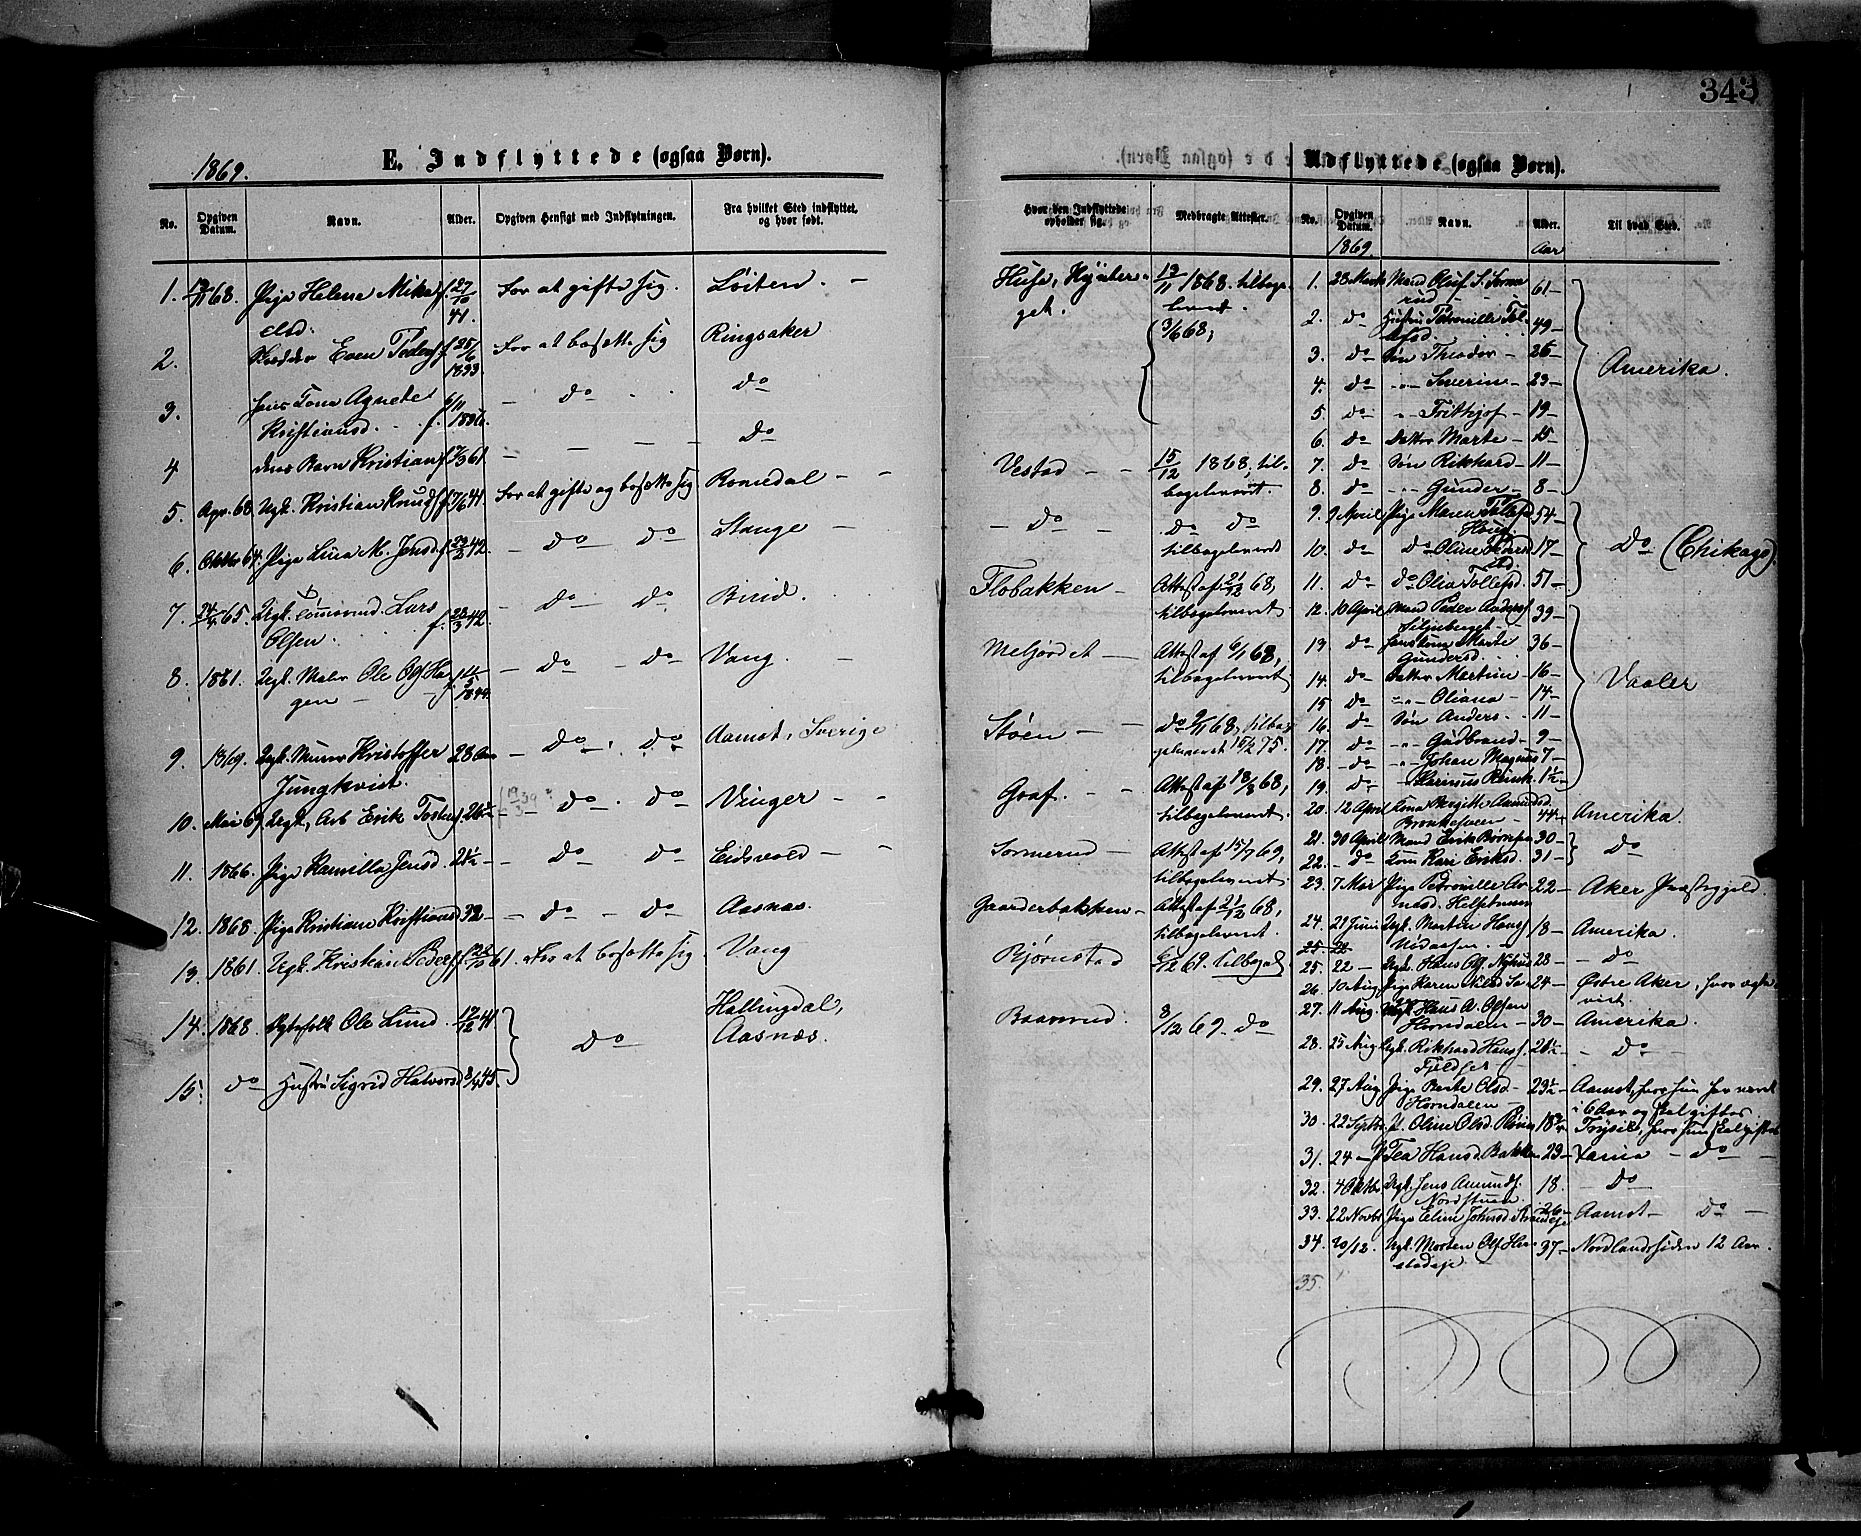 343
1869.
E. Indflyttede (ogsaa Børn).
No. Opgiven Datum. Navn. Alder. Opgiven Hensigt med Indflytningen. Fra hvilket Sted indflyttet, og hvor født.
1. 13/11 68. Pige Helene Mika- f. 27/10 For at gifte sig. Löiten. –
elsd. 41.
2. Even Peders f. 25/6 For at bosætte sig Ringsaker
1833.
3. Agnete 6/11 – do . . do
Kristiansd. f. 1836.
4 deres Barn Kristian f. 17/3 61 – – – – do
5. Apr. 68 Ugk. Kristian Knuds f. 7/6 41 For at gifte og bosætte sig Romedal –
6. Oktbr 64. Pige Lina M. Jensd. f. 42. – do – do Stange –
7. 24/ 65. Ugk. Lars – do do Birid.
Olsen. f. 23/3 42.
8. 1861. Ugk. Maler Ole Ols Ha- – do – do Vang. –
gen – 1844.
9. 1869. Ugk. Murer Kristoffer 28 Aar – do . do Aamot, Sverige
Jungkvist.
10. Mai 69 Ugk, Arb Erik Tosters 26 – (19/3 39?) do . do Vinger – –
11. 1866. Pige Kamilla Jensd. 21½ – – do do Eidsvold – –
12. 1868. Pige Kristiane Kristiansd 32 – – do – do Aasnæs.
13. 1861. Ugk. Kristian Peders f. 61. For at bosætte sig Vang
14. 1868. Ole Lund 12/12 41 Hallingdal,
do Aasnæs.
15. do Hustru Sigrid Halvorsd 8/4 45
Hvor den Indflyttede opholder sig. Medbragte Attester.
Huse, 13/11 1868. tilbage-
get. leveret.
3/6 68,
Vestad – – 15/12 1868, til-
bageleveret.
– do – do do
tilbageleveret
Flobakken – Attest af 21/12 68,
tilbageleveret
Melfördet – Attest af 6/1 68,
tilbageleveret
Støen – – do 9/11 68, tilba-
geleveret 15/2 75.
Graf. – – Attest af 18/3 68,
tilbageleveret.
Sormerud – Attest af 15/7 69,
tilbageleveret.
Gaarderbakken – Attest af 21/12 68,
tilbageleveret.
Bjørnstad 6/12 69. tilbagel.
Baaverud. 8/12 69. do
Udflyttede (ogsaa Børn).
No. Opgiven Datum. Navn. Alder. Til hvad Sted.
1869. Aar
1. 23 Marts Mand Oluf S. Sorme-
rud – 61 –
2. do Hustru Petronille Tol-
lefsd. 49 –
3. do Søn Theodor – 26 – Amerika.
4. do – „ – Severin – 23 –
5. do – „ – Frithjof – 19 –
6. do Datter Marte – 15 –
7. do Søn Rikhard – 11 –
8. do – „ – Gunder – 8 –
9. 9 April Pige Maren Tollefsd 54 –
10. do do Oline – 17 – do (Chikago).
11. do do Olia Tollefsd. 51 –
12. 10 April Mand Peder Anders 39 –
13. do Marte 36 –
Gundersd.
14. do Datter Martine – 16 –
15. do – „ – Oliana – 14 – Vaaler
16. do Søn Anders – 11 –
17. do – „ – Gudbrand – 9 –
18. – do – „ – Johan Magnus 7 –
19. do – Karinus Reink. 1½ –
20. 12 April Kone Birgitte Aamundsd. 44 – Amerika.
21. 30 April Mand Erik Bjørnsen 30 –
22. – do – Kone Kari Eriksd. 31 – do
23. 7 Mai Pige Petronille Ar- 22 – Aker Præstegjeld.
24. 21 Juni Ugk. Martin Hans 18 – Amerika.
25 22
25. 22 – Ugk. Hans Ols. 28 – – do
26. 10 Aug. Pige Karen Nilsd 24 – Østre Aker, hvor
27. 11 Aug. Ugk Hans A. Olsen
Horndalen – 30 – Amerika.
28. 25 Aug Ugk. Rikhard Hans. 26½ – – do –
29. 27 Aug Pige Berte Olsd – 23½ – Aamot, hvor hun har været
Horndalen – i 6 Aar og skal giftes
30. 22 Septbr P. Oline Olsd. 18 Trysil, hvor hun skal giftes
31. 24 – P Tea Hansd. Bakken 23 – – do –
32. 4 Oktbr Ugk. Jens Amunds. 18. – do
Nordstuen.
33. 22 Novbr Pige Eline Johnsd 26 – Aamot – do –
34. 20/12. Ugk. Morten Ols 37 – Nordlandssiden 12 Aar.
stadeje
35.